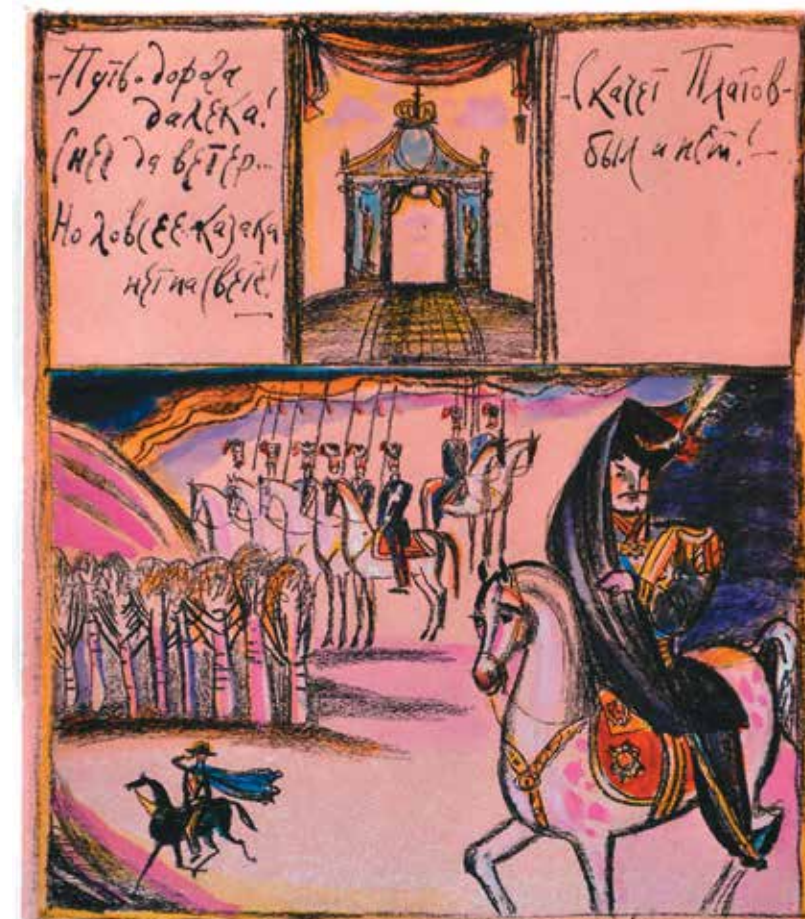 -Путь-дорога
далека!
Снег да ветер...
Но ловчее казака
нет на свете!
-Скачет Платов-
был и нет!-